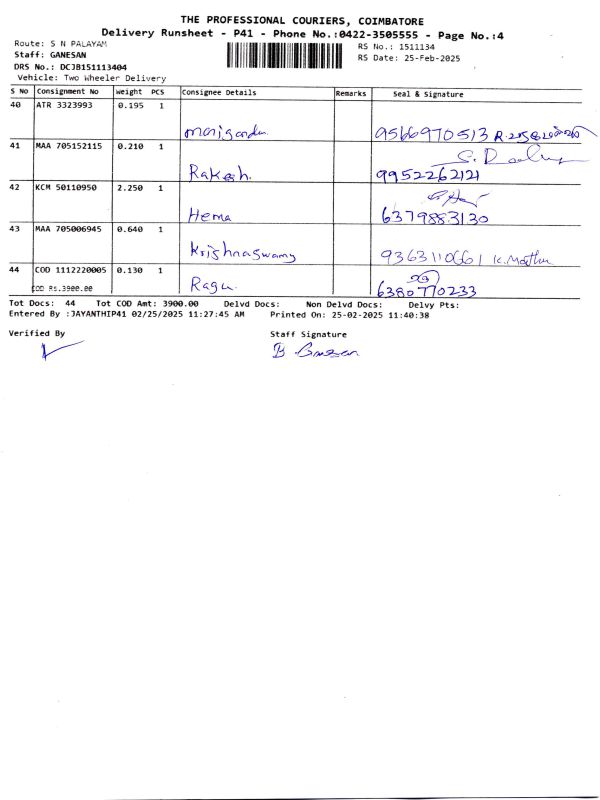 THE PROFESSIONAL COURIERS, COIMBATORE
Delivery Runsheet - P41 - Phone No.:0422-3505555 - Page No.:4
Route: S N PALAYAM
RS No.: 1511134
Staff: GANESAN
RS Date: 25-Feb-2025
DRS No.: DCJB151113404
Vehicle: Two Wheeler Delivery
S No Consignment No Weight PCS Consignee Details Remarks Seal & Signature
40 ATR 3323993 0.195 1
9566970513
41 MAA 705152115 0.210 1
Rakesh. 9952262121
42 KCM 50110950 2.250 1
Hema 6379883130
43 MAA 705006945 0.640 1
Krishnaswamy 9363110661
44 COD 1112220005 0.130 1
COD Rs.3900.00 Ragu. 6380770233
Tot Docs: 44 Tot COD Amt: 3900.00 Delvd Docs: Non Delvd Docs: Delvy Pts:
Entered By :JAYANTHIP41 02/25/2025 11:27:45 AM Printed On: 25-02-2025 11:40:38
Verified By Staff Signature